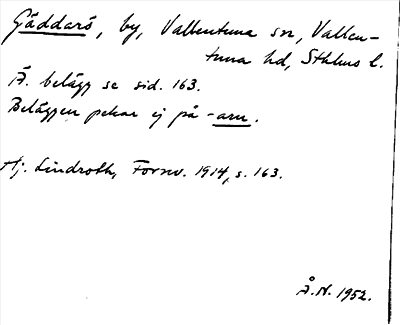 Gäddarö, by, Vallentuna sn, Vallen-
tuna hd, Sthlms l.
Ä. belägg se sid. 163.
Beläggen pekar ej på -arn.
Hj. Lindroth, Fornv. 1914, s. 163.
Å.N. 1952.